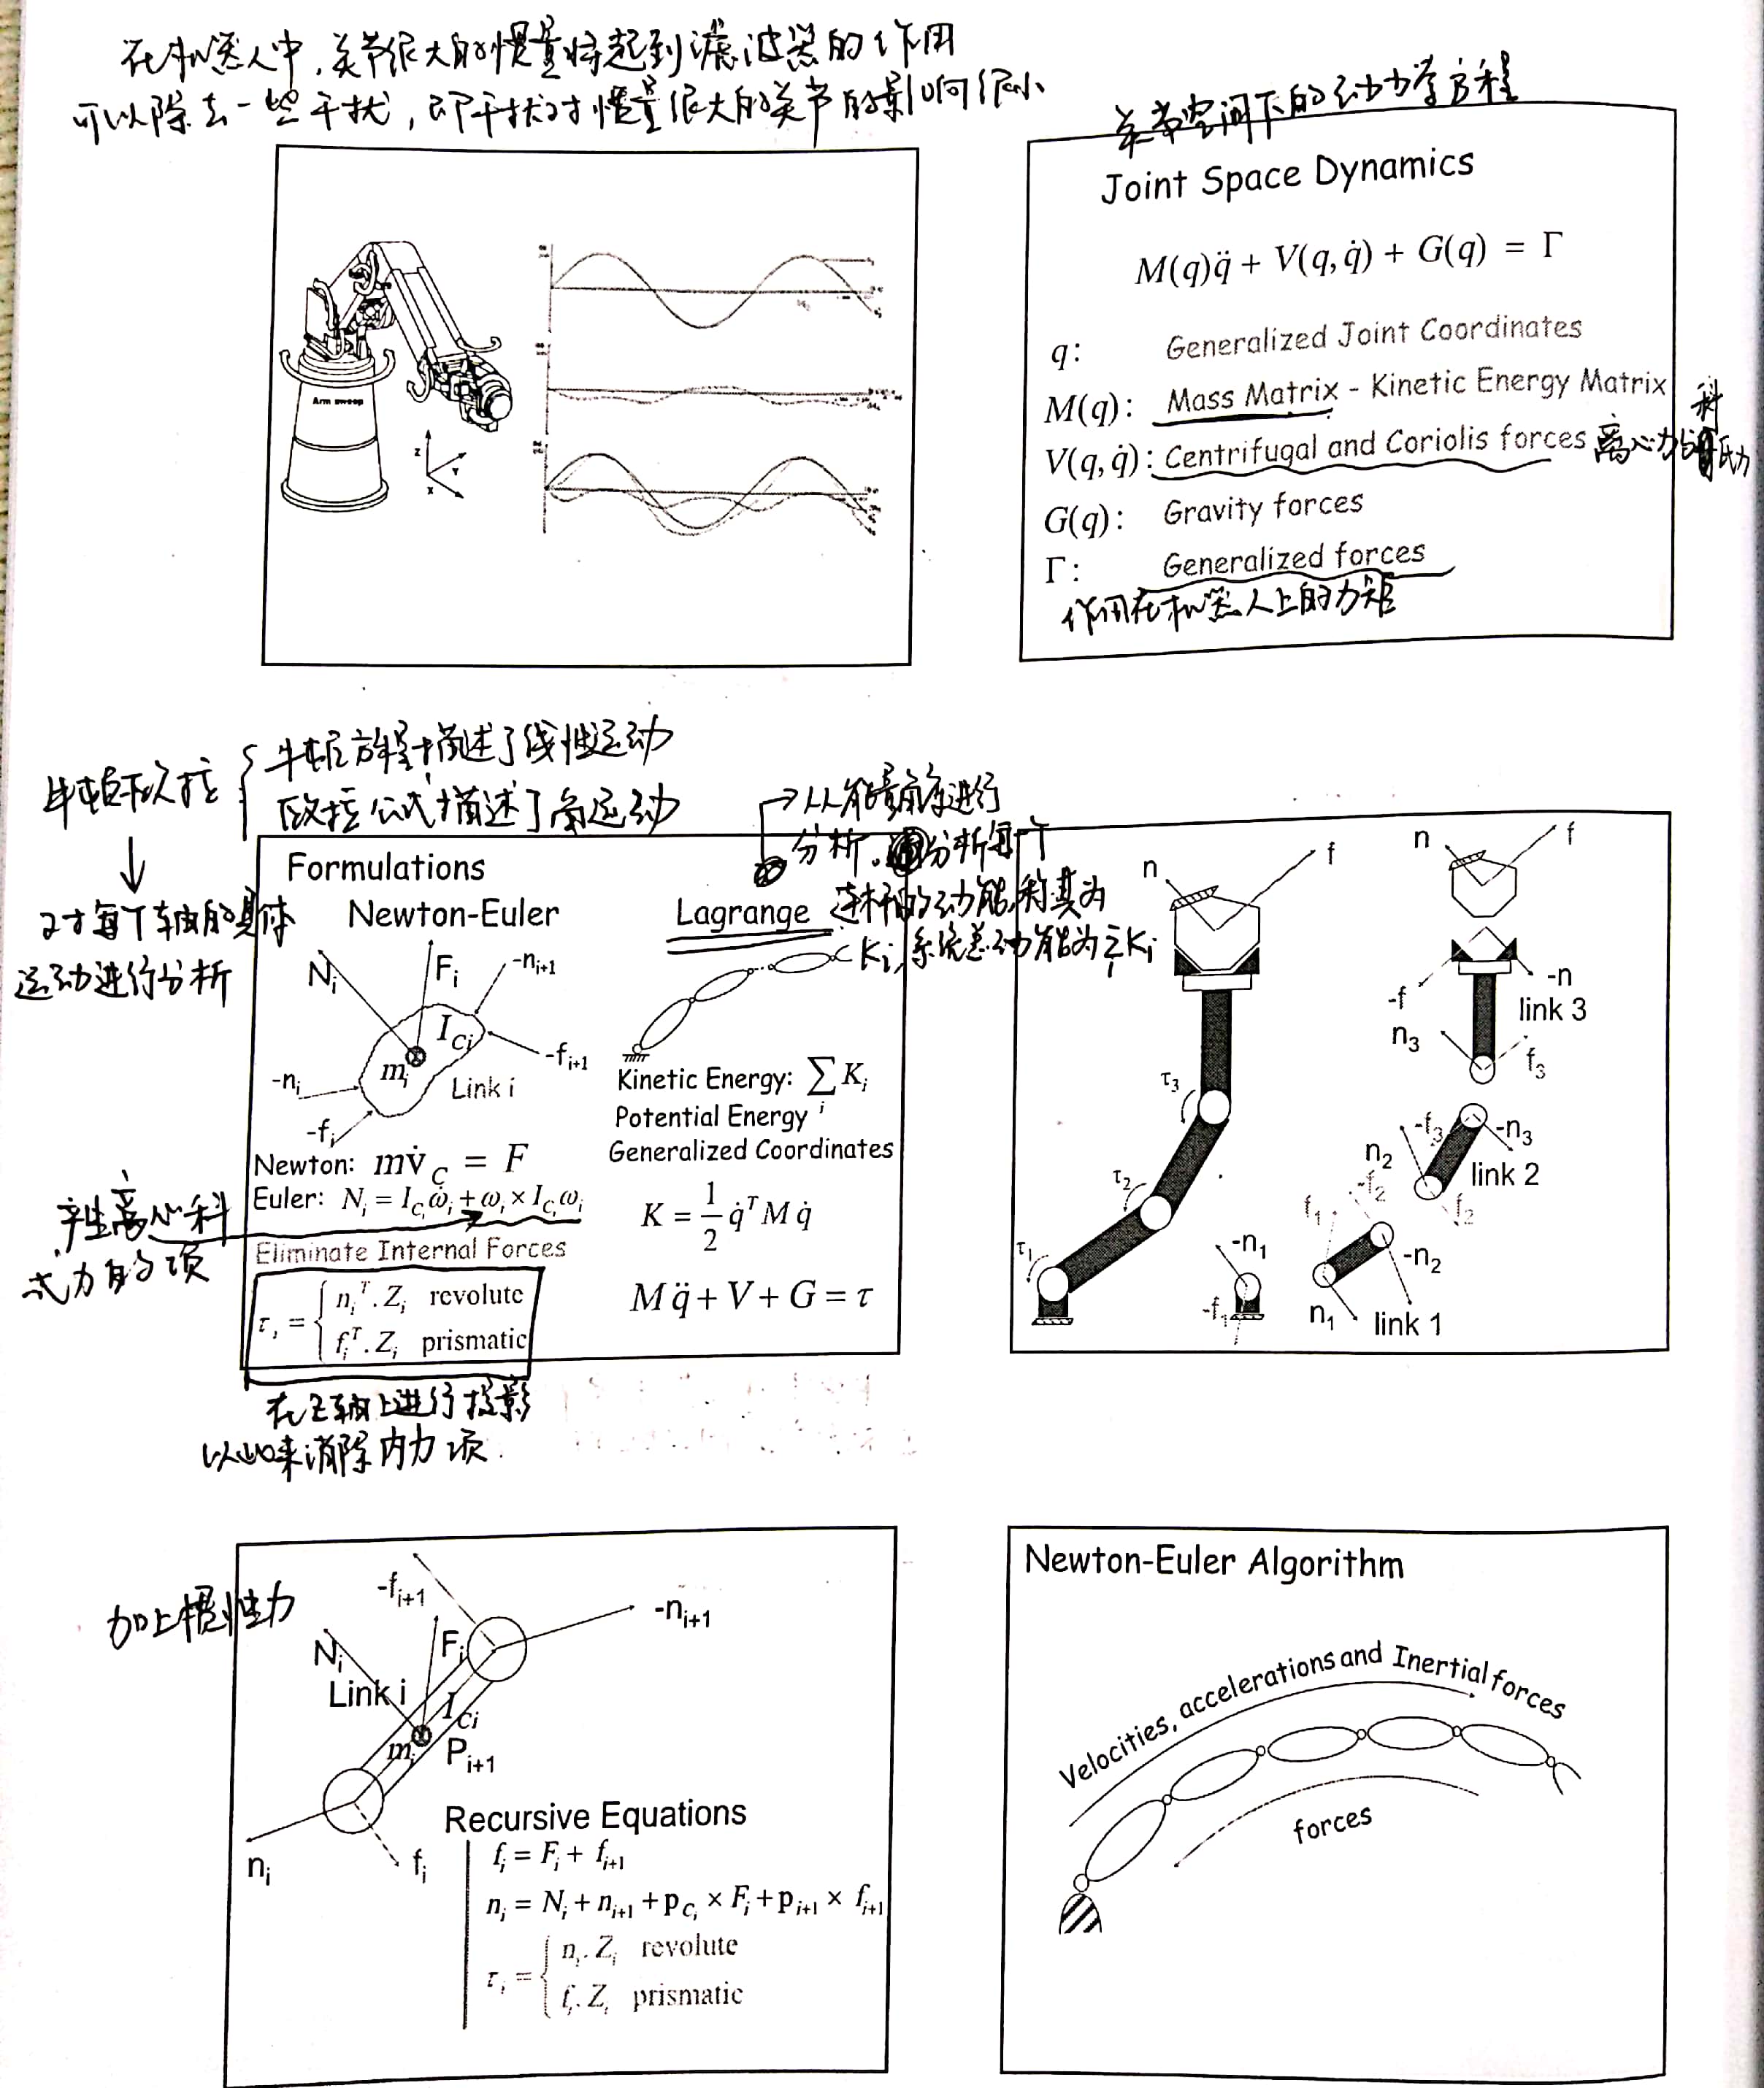 在机器人中,关节很大的惯量将起到滤波器的作用
可以除去一些干扰,即干扰对惯量很大的关节的影响很小
Arm sweep
Z
Y
X
关节空间下的动力学方程
Joint Space Dynamics
M(q)q̈ + V(q, q̇) + G(q) = Γ
q: Generalized Joint Coordinates
M(q): Mass Matrix - Kinetic Energy Matrix
V(q, q̇): Centrifugal and Coriolis forces 离心力与科氏力
G(q): Gravity forces
Γ: Generalized forces
作用在机器人上的力矩
牛顿欧拉
牛顿方程描述了线性运动
欧拉公式描述了角运动
对每个轴的具体
运动进行分析
从能量角度进行
分析。分析每个
连杆的动能,称其为
Ki,系统总动能为ΣKi
Formulations
Newton-Euler
Ni
Fi
-ni+1
ICi
mi
Link i
-fi+1
-ni
-fi
Newton: mv̇C = F
Euler: Ni = ICi ω̇i + ωi × ICi ωi
产生离心科
式力的项
Eliminate Internal Forces
τi = { niT . Zi revolute
fiT . Zi prismatic
在Z轴上进行投影
以此来消除内力项
Lagrange
Kinetic Energy: ΣKi
Potential Energy i
Generalized Coordinates
K = 1/2 q̇T M q̇
M q̈ + V + G = τ
n
f
τ3
τ2
τ1
n
f
-f
-n
link 3
n3
f3
-f3
-n3
n2
link 2
-f2
f2
f1
-n2
-n1
-f1
n1
link 1
加上惯性力
-fi+1
-ni+1
Ni
Fi
Link i
ICi
mi
Pi+1
ni
fi
Recursive Equations
fi = Fi + fi+1
ni = Ni + ni+1 + pCi × Fi + pi+1 × fi+1
τi = { ni . Zi revolute
fi . Zi prismatic
Newton-Euler Algorithm
Velocities, accelerations and Inertial forces
forces